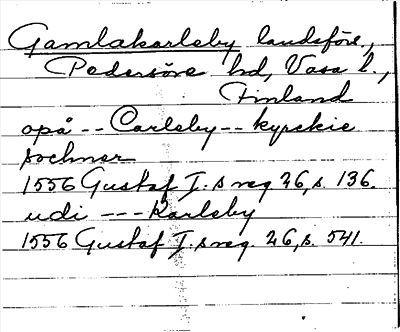 Gamlakarleby landsförs.,
Pedersöre hd, Vasa l.,
Finland
opå -- Carleby -- kyrckie
sochner
1556 Gustaf I:s reg 26, s. 136.
udi --- Karleby
1556 Gustaf I:s reg. 26, s. 541.